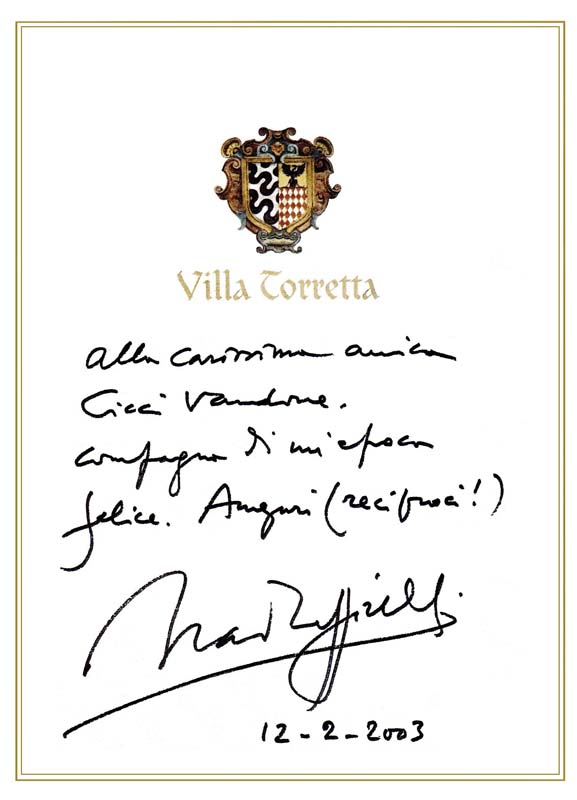 Villa Torretta
alla carissima amica
Cicci Vandone.
compagna di un'epoca
felice. Auguri (reciproci!)
12-2-2003